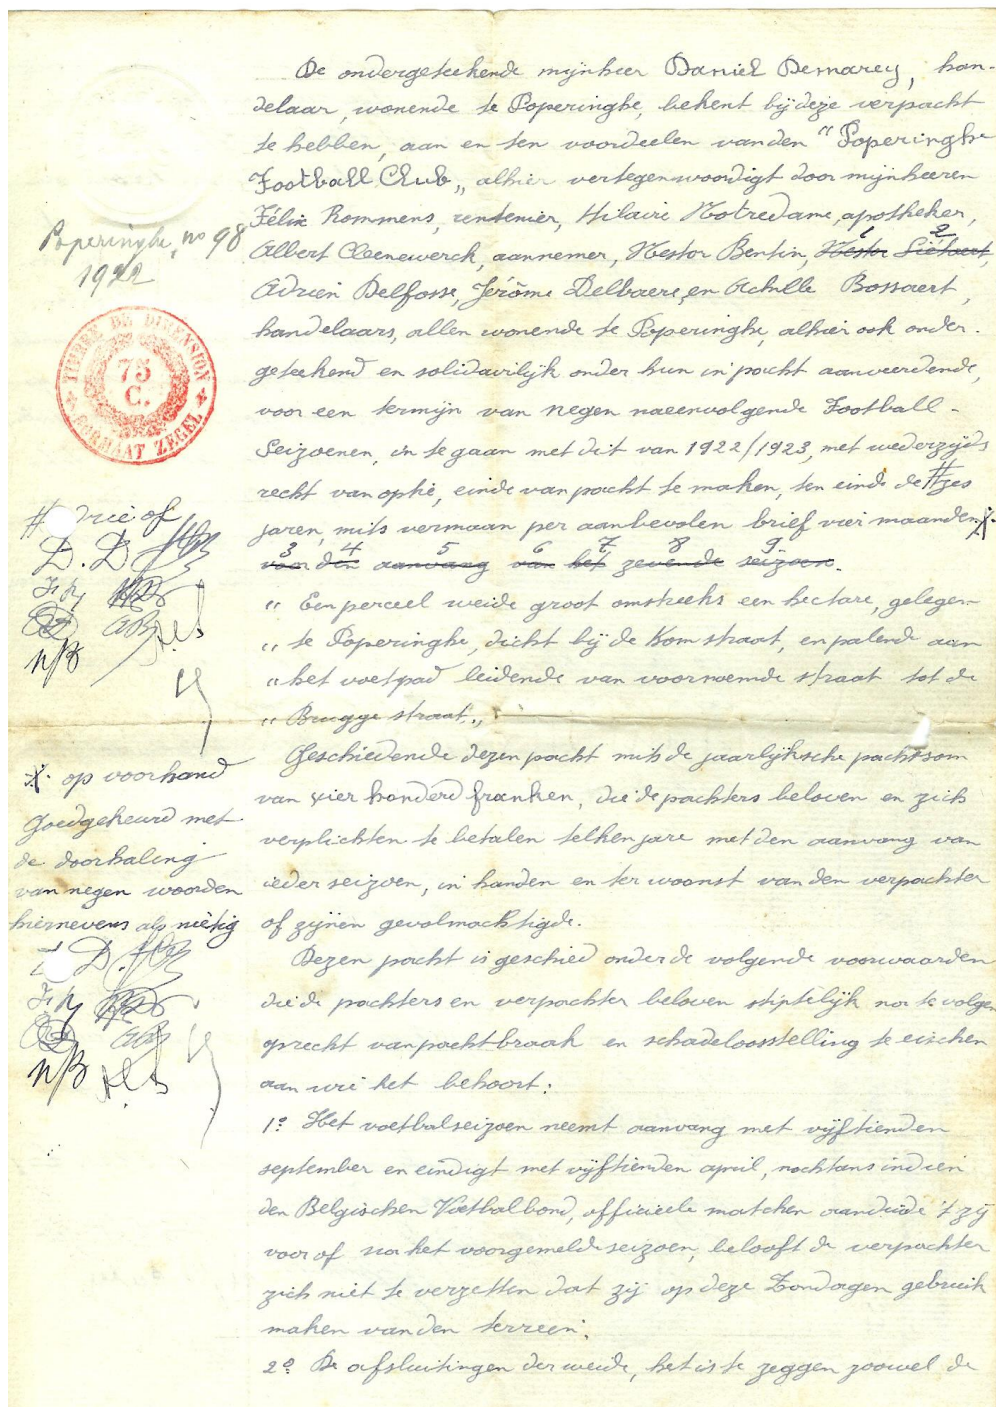 De ondergeteekende mijnheer Daniël Demarey, han-
delaar, wonende te Poperinghe, bekent bij deze verpacht
te hebben, aan en ten voordeelen van den "Poperinghe
Football Club,, alhier vertegenwoordigt door mijnheeren
Félix Rommens, rentenier, Hilaire Notredame, apotheker,
Albert Cleenewerck, aannemer, Nestor Bentin, Nestor Liétaert,
1 2
Adrien Delfosse, Jérôme Delbaere, en Achille Bossaert,
handelaars, allen wonende te Poperinghe, alhier ook onder-
geteekend en solidairlijk onder hun in pacht aanveerdende,
voor een termijn van negen naeenvolgende Football-
Seizoenen, in te gaan met dit van 1922/1923, met wederzijds
recht van optie, einde van pacht te maken, ten einde de # zes
jaren, mits vermaan per aanbevolen brief vier maanden X.
3 4 5 6 7 8 9
voor den aanvang van het zevende seizoen.
" Een perceel weide groot omstreeks een hectare, gelegen
" te Poperinghe, dicht bij de Komstraat, en palende aan
" het voetpad leidende van voornoemde straat tot de
" Brugge straat.,,
Geschiedende dezen pacht mits de jaarlijksche pachtsom
van vier honderd franken, die de pachters beloven en zich
verplichten te betalen telken jare met den aanvang van
ieder seizoen, in handen en ter woonst van den verpachter
of zijnen gevolmachtigde.
Dezen pacht is geschied onder de volgende voorwaarden
die de pachters en verpachter beloven stiptelijk na te volgen
op recht van pachtbraak en schadeloosstelling te eischen
aan wie het behoort:
1º Het voetbalseizoen neemt aanvang met vijftienden
september en eindigt met vijftienden april, nochtans indien
den Belgischen Voetbalbond, officieele matchen aanduide 't zij
voor of na het voorgemelde seizoen, belooft de verpachter
zich niet te verzetten dat zij op deze Zondagen gebruik
maken van den terrein.
2º De afsluitingen der weide, het is te zeggen zoowel de
Poperinghe, no 98
1922
TIMBRE DE DIMENSION
75
C.
FORMAAT ZEGEL
# drie of
D. D
A B
N B
X. op voorhand
Goedgekeurd met
de doorhaling
van negen woorden
hiernevens als nietig
D.
N B